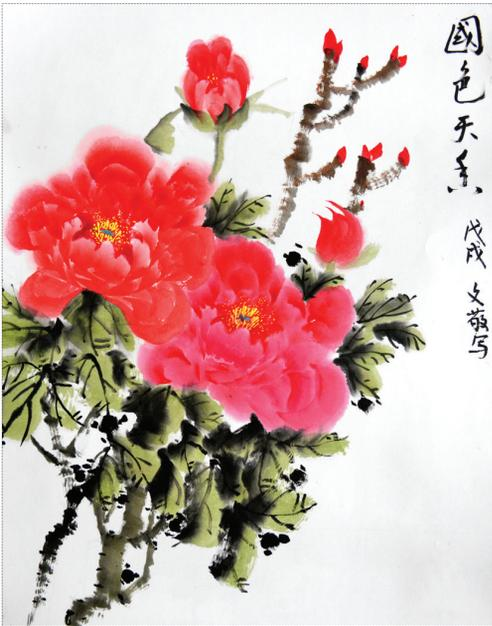 國色天香
戊戌 文敬写